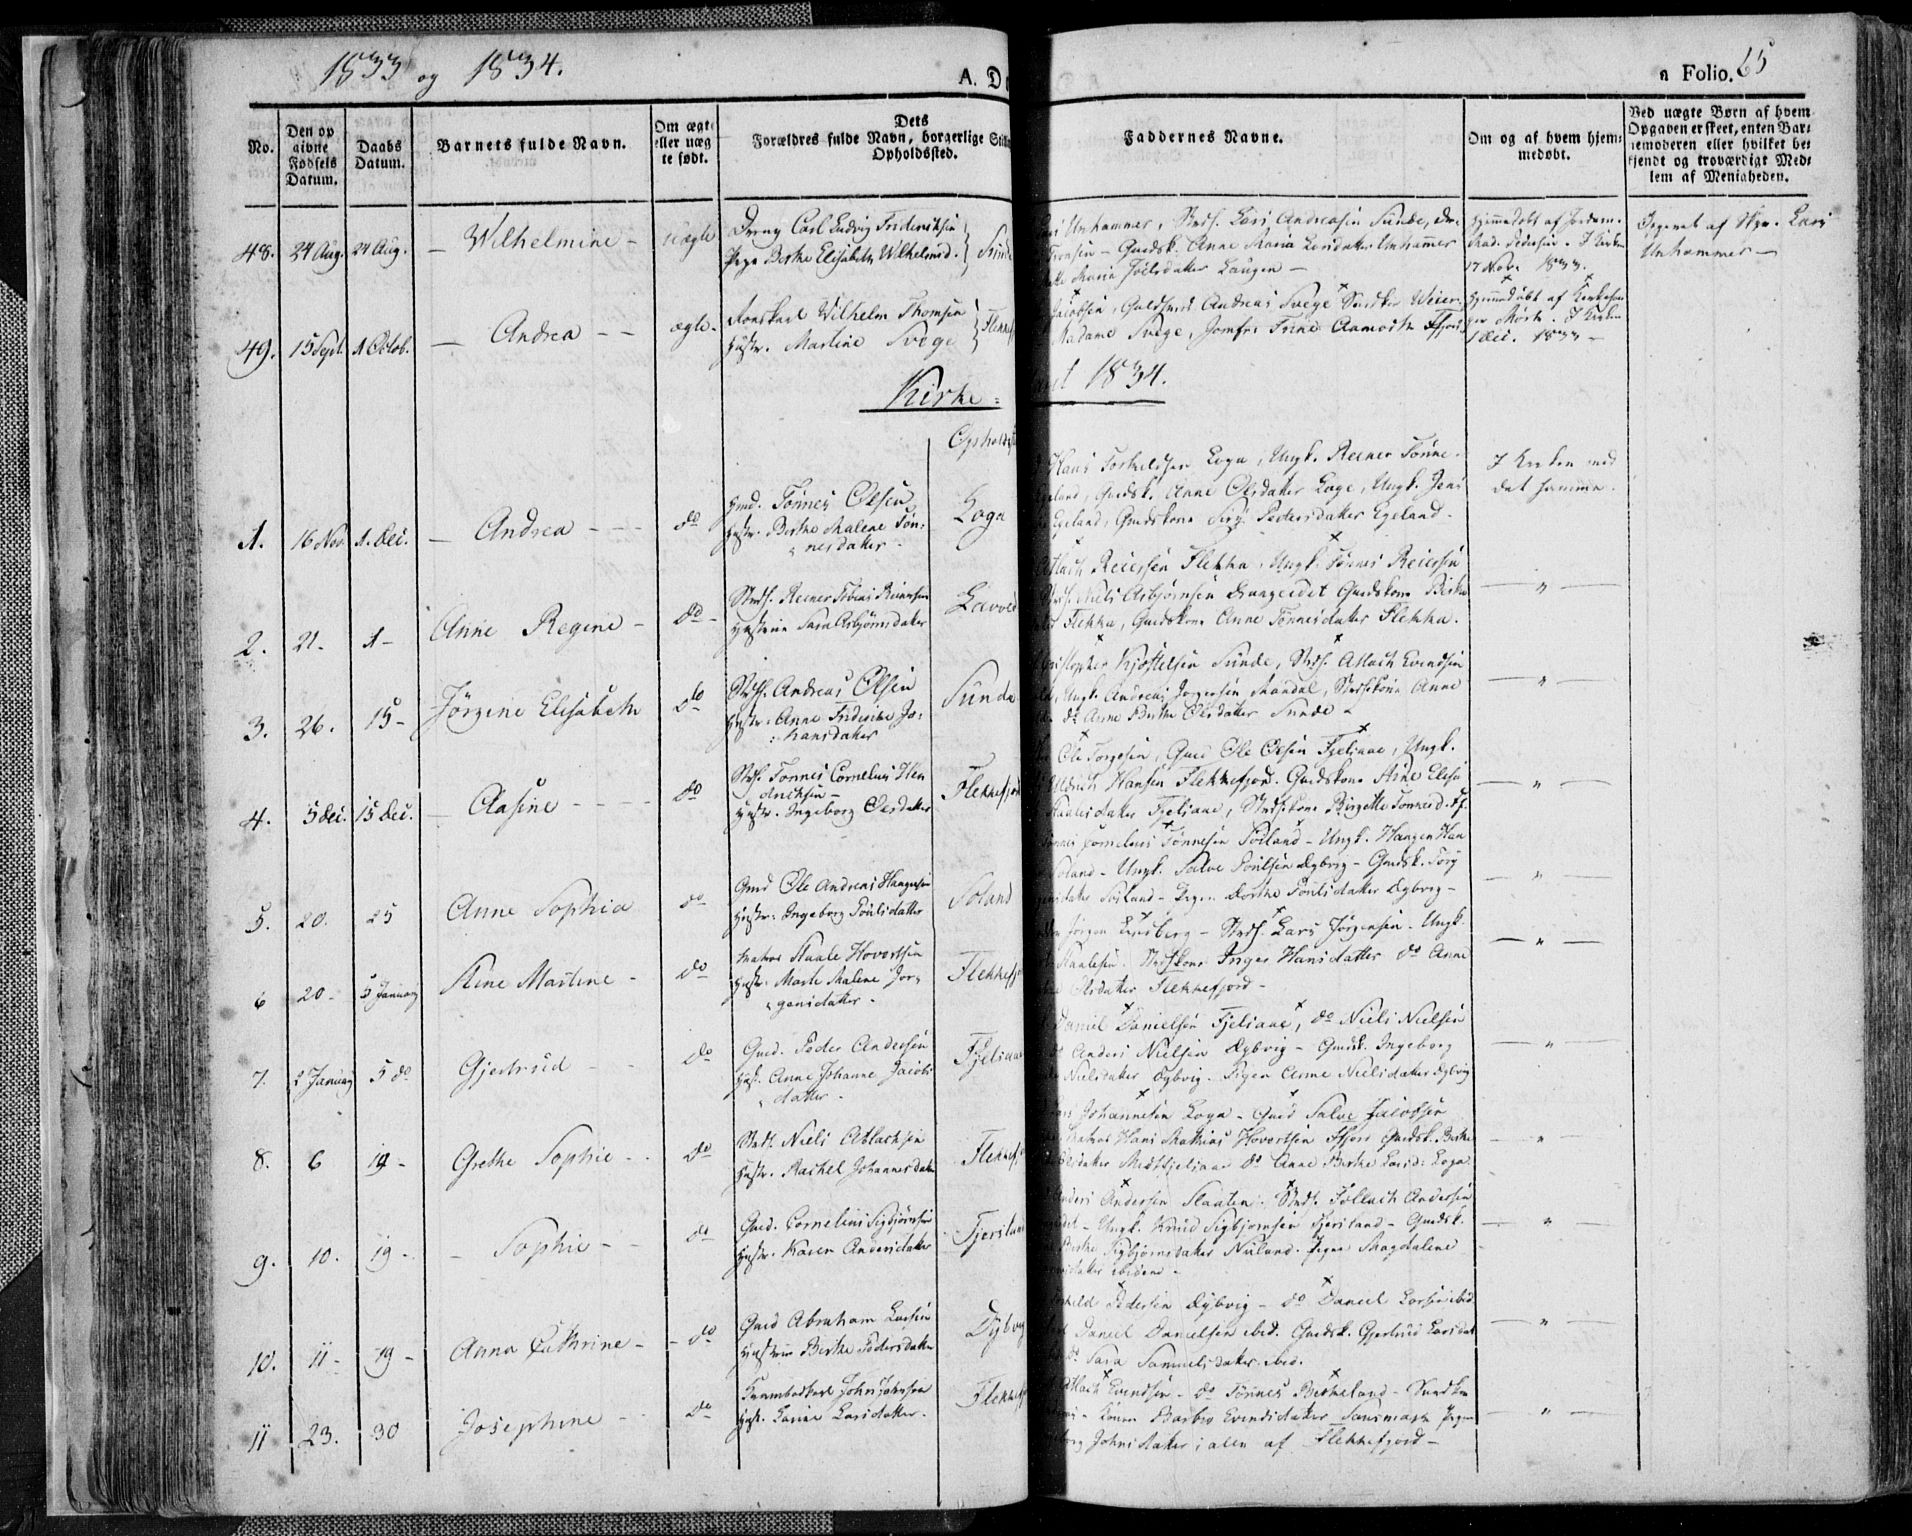 1833 og 1834.
A. D
a Folio. 65
No.
Den op
givne
Fødsels
Datum.
Daabs
Datum.
Barnets fulde Navn.
Om ægte
eller uæg
te født.
Dets
Forældres fulde Navn, borgerlige Still
Opholdssted.
Faddernes Navne.
Om og af hvem hjem-
medøbt.
Ved uægte Børn af hvem
Opgaven er skeet, enten Bar-
nemoderen eller hvilket be-
kjendt og troværdigt Med-
lem af Menigheden.
48. 24 Aug. 24 Aug. — Wilhelmine — uægte
Dreng Carl Ludvig Frideriksen
Pige Berthe Elisabeth Wilhelmsd.
Unhammer, Lars Andreasen Sunde,
Gudsk. Anne Maria Larsdatter Unhammer
Maria Joelsdatter Laugen —
Hjemmedøbt af Jordem.
Mad. Pedersen. I Kirken
17 Nov. 1833.
Opgivet af Lars
Unhammer —
49. 15 Sept. 1 Octob. — Andrea — — ægte.
Wilhelm Thomsen
Hustr. Martine Svege
Flekkef
Jacobsen, Guldsmed Andreas Svege, Weier
Madame Svege, Jomfru Trine Aamodt Ffjord
Hjemmedøbt af
I Kirken
1 Dec. 1833 —
Kirke = aaret 1834.
Opholdsst
1. 16 Nov. 1. Dec. — Andrea — — — do
Gmd. Tønnes Olsen
Hustr. Berthe Malene Tøn-
nesdatter —
Loga
Hans Torkildsen Loga, Ungk. Reener Tønne-
Egeland, Gudsk. Anne Olsdatter Loge, Ungk. Jens
Egeland, Gmdskone Siri Pedersdatter Egeland —
I Kirken med
det samme.
2. 21. 1 — Anne Regine — do —
Strds. Reener Tobias Reinertsen
Hustrue Sara Asbjørnsdatter
Atlach Reiersen Flekka, Ungk. Tønnes Reiersen
Strds. Niels Asbjørnsen Drangeidet Gmdskone Berthe
Flekka, Gmdskone Anne Tønnesdatter Flekka.
— " —
3. 26. 15 — Jørgine Elisabeth do
Strds. Andreas Olsen
Hustr. Anne Friderike Jo-
hansdatter
Sunde
Christopher Kjøstelsen Sunde, Strds. Atlach Evendsen
Ungk. Andreas Jørgensen Mandal, Strdskone Anne
do Anne Berthe Olsdatter Sunde —
— " —
4. 5 Dec. 15 Dec. — Olasine — — — do
Strds. Tønnes Cornelius Hen
dricksen —
Hustr. Ingeborg Olsdatter
Flekkefjord
Ole Torgesen, Gmd Ole Olsen Fjeliaae, Ungk.
Hansen Flekkefjord. Gmdskone Ane Elise
Staalesdatter Fjeliaae, Strdskone Birgitte Tønnesd. Ff.
— " —
5. 20. 25 Anne Sophia do
Gmd Ole Andreas Haagensen
Hustr. Ingeborg Poulsdatter
Soland
Tønnes Cornelius Tønnesen Soland — Ungk. Haagen Han
Soland — Ungk. Salve Poulsen Dybvig — Gmdsk. Siri
Soland — Pigen Dorthe Poulsdatter Dybvig —
— " —
6 20 — 5 January Stine Martine — do
Matros Staale Hovertsen
Hustr. Marte Malene Jør-
gensdatter —
Flekkefj
Jørgen — Strds. Lars Jørgensen — Ungk.
Staalesen. Strdskone Inger Hansdatter do Anne
Olsdatter Flekkefjord —
— " —
7. 2 January 5 do Gjertrud — — do
Gmd. Peder Andersen
Hust. Anne Johanne Jacobs
datter —
Fjeliaae
Daniel Danielsen Fjeliaae, do Niels Nielsen
Anders Nielsen Dybvig — Gmdsk. Ingeborg
Nielsdatter Dybvig. Pigen Anne Nielsdatter Dybvig
— " —
8. 6 19 — Grethe Sophie — . do
Strds. Niels Atlachsen
Hustr. Rachel Johannesdatter
Flekkefj
Johannesen Loga — Gmd Salve Jacobsen
Matros Hans Mathias Hovertsen Ffjord Gmdsk. Berthe
Midtfjeliaae do Anne Berthe Larsd: Loga
— " —
9. 10. 19 — — Sophie — — do
Gmd. Cornelius Sigbjørnsen
Hustr. Karen Andersdatter
Fjersland
Anders Andersen Slaaten. Strds. Tollach Andersen
Ungk. Knud Sigbjørnsen Fjersland — Gmdsk.
Berthe Sigbjørnsdatter Nuland. Pigen Magdalene
datter ibidem —
— " —
10. 11 — 19 — Anna Cathrine — — do
Gmd Abraham Larsen
Hustrue Berthe Pedersdatter
Dybvig
Pedersen Dybvig — do Daniel Larsen ibid
Daniel Danielsen ibid. Gmdsk. Gjertrud Larsdat
do Sara Samuelsdatter ibid.
— " —
11 23. 30 Josephine — — do
Krambodkarl John Johnsen
Hust. Larine Larsdatter.
Flekkefj
Atlach Evendsen — do Tønnes Birkeland —
Konen Barbro Evendsdatter Pigen
Johnsdatter; alle af Flekkefjord —
— " —